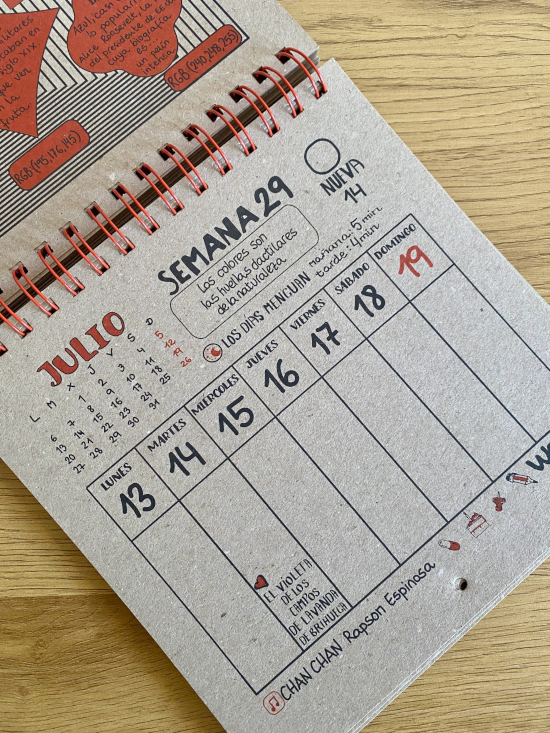 Azul, cas
lo popular
Alice Roosevelt, la
del presidente de EE.UU
cuya biografía
es
un poco
intensa
RGB(240,248,255)
utores
taban en
siglo XIX
que ven
en la
fruta
RGB(195,176,145)
SEMANA 29
NUEVA
14
Los colores son
las huellas dactilares
de la naturaleza
LOS DÍAS MENGUAN mañana: 5 min
tarde: 4 min
JULIO
L M X J V S D
1 2 3 4 5
6 7 8 9 10 11 12
13 14 15 16 17 18 19
20 21 22 23 24 25 26
27 28 29 30 31
LUNES MARTES MIÉRCOLES JUEVES VIERNES SÁBADO DOMINGO
13 14 15 16 17 18 19
EL VIOLETA
DE LOS
CAMPOS
DE LAVANDA
DE BRIHUEGA
CHAN CHAN Rapson Espinosa